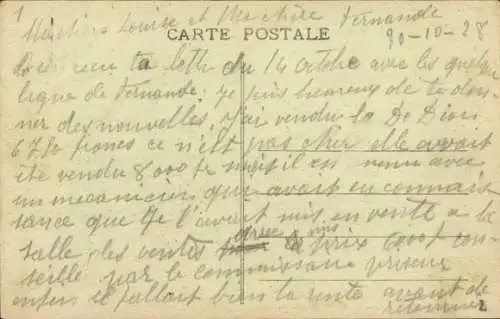 1
Louise et Fernande
CARTE POSTALE
30-10-28
reçu ta lettre du 14 octobre avec les quelques
ligne de Fernande. je suis heureux de te don-
ner des nouvelles, j'ai vendu la De Dion
6750 francs ce n'est pas cher elle avait
été vendu 8000 fr mais il en venu avec
un mécanicien qui avait eu connais
sance que je l'avait mis en vente a la
salle des ventes avec mis a prix 6000 con-
seillé par le commissaire priseur
enfin il fallait bien la vente avant de
retourner